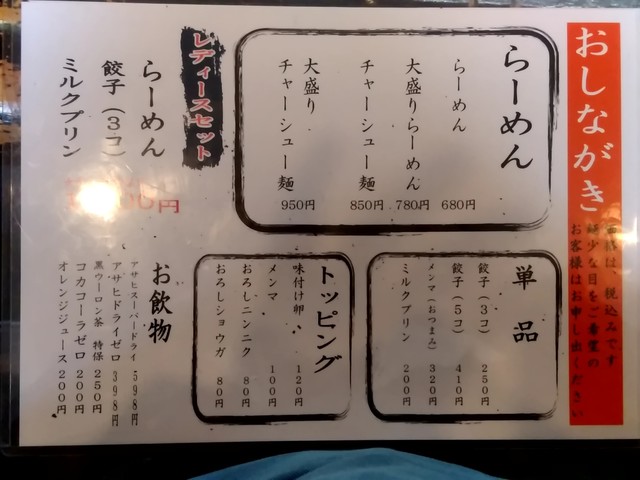 おしながき
価格は、税込みです
お客様はお申し出ください
らーめん
らーめん 680円
大盛りらーめん 780円
チャーシュー麺 850円
大盛り
チャーシュー麺 950円
レディースセット
らーめん
餃子（3コ）
ミルクプリン
円
単品
餃子（3コ） 250円
餃子（5コ） 410円
メンマ（おつまみ） 320円
ミルクプリン 200円
トッピング
味付け卵 120円
メンマ 100円
おろしニンニク 80円
おろしショウガ 80円
お飲物
アサヒスーパードライ 598円
アサヒドライゼロ 398円
黒ウーロン茶 特保 250円
コカコーラゼロ 200円
オレンジジュース 200円